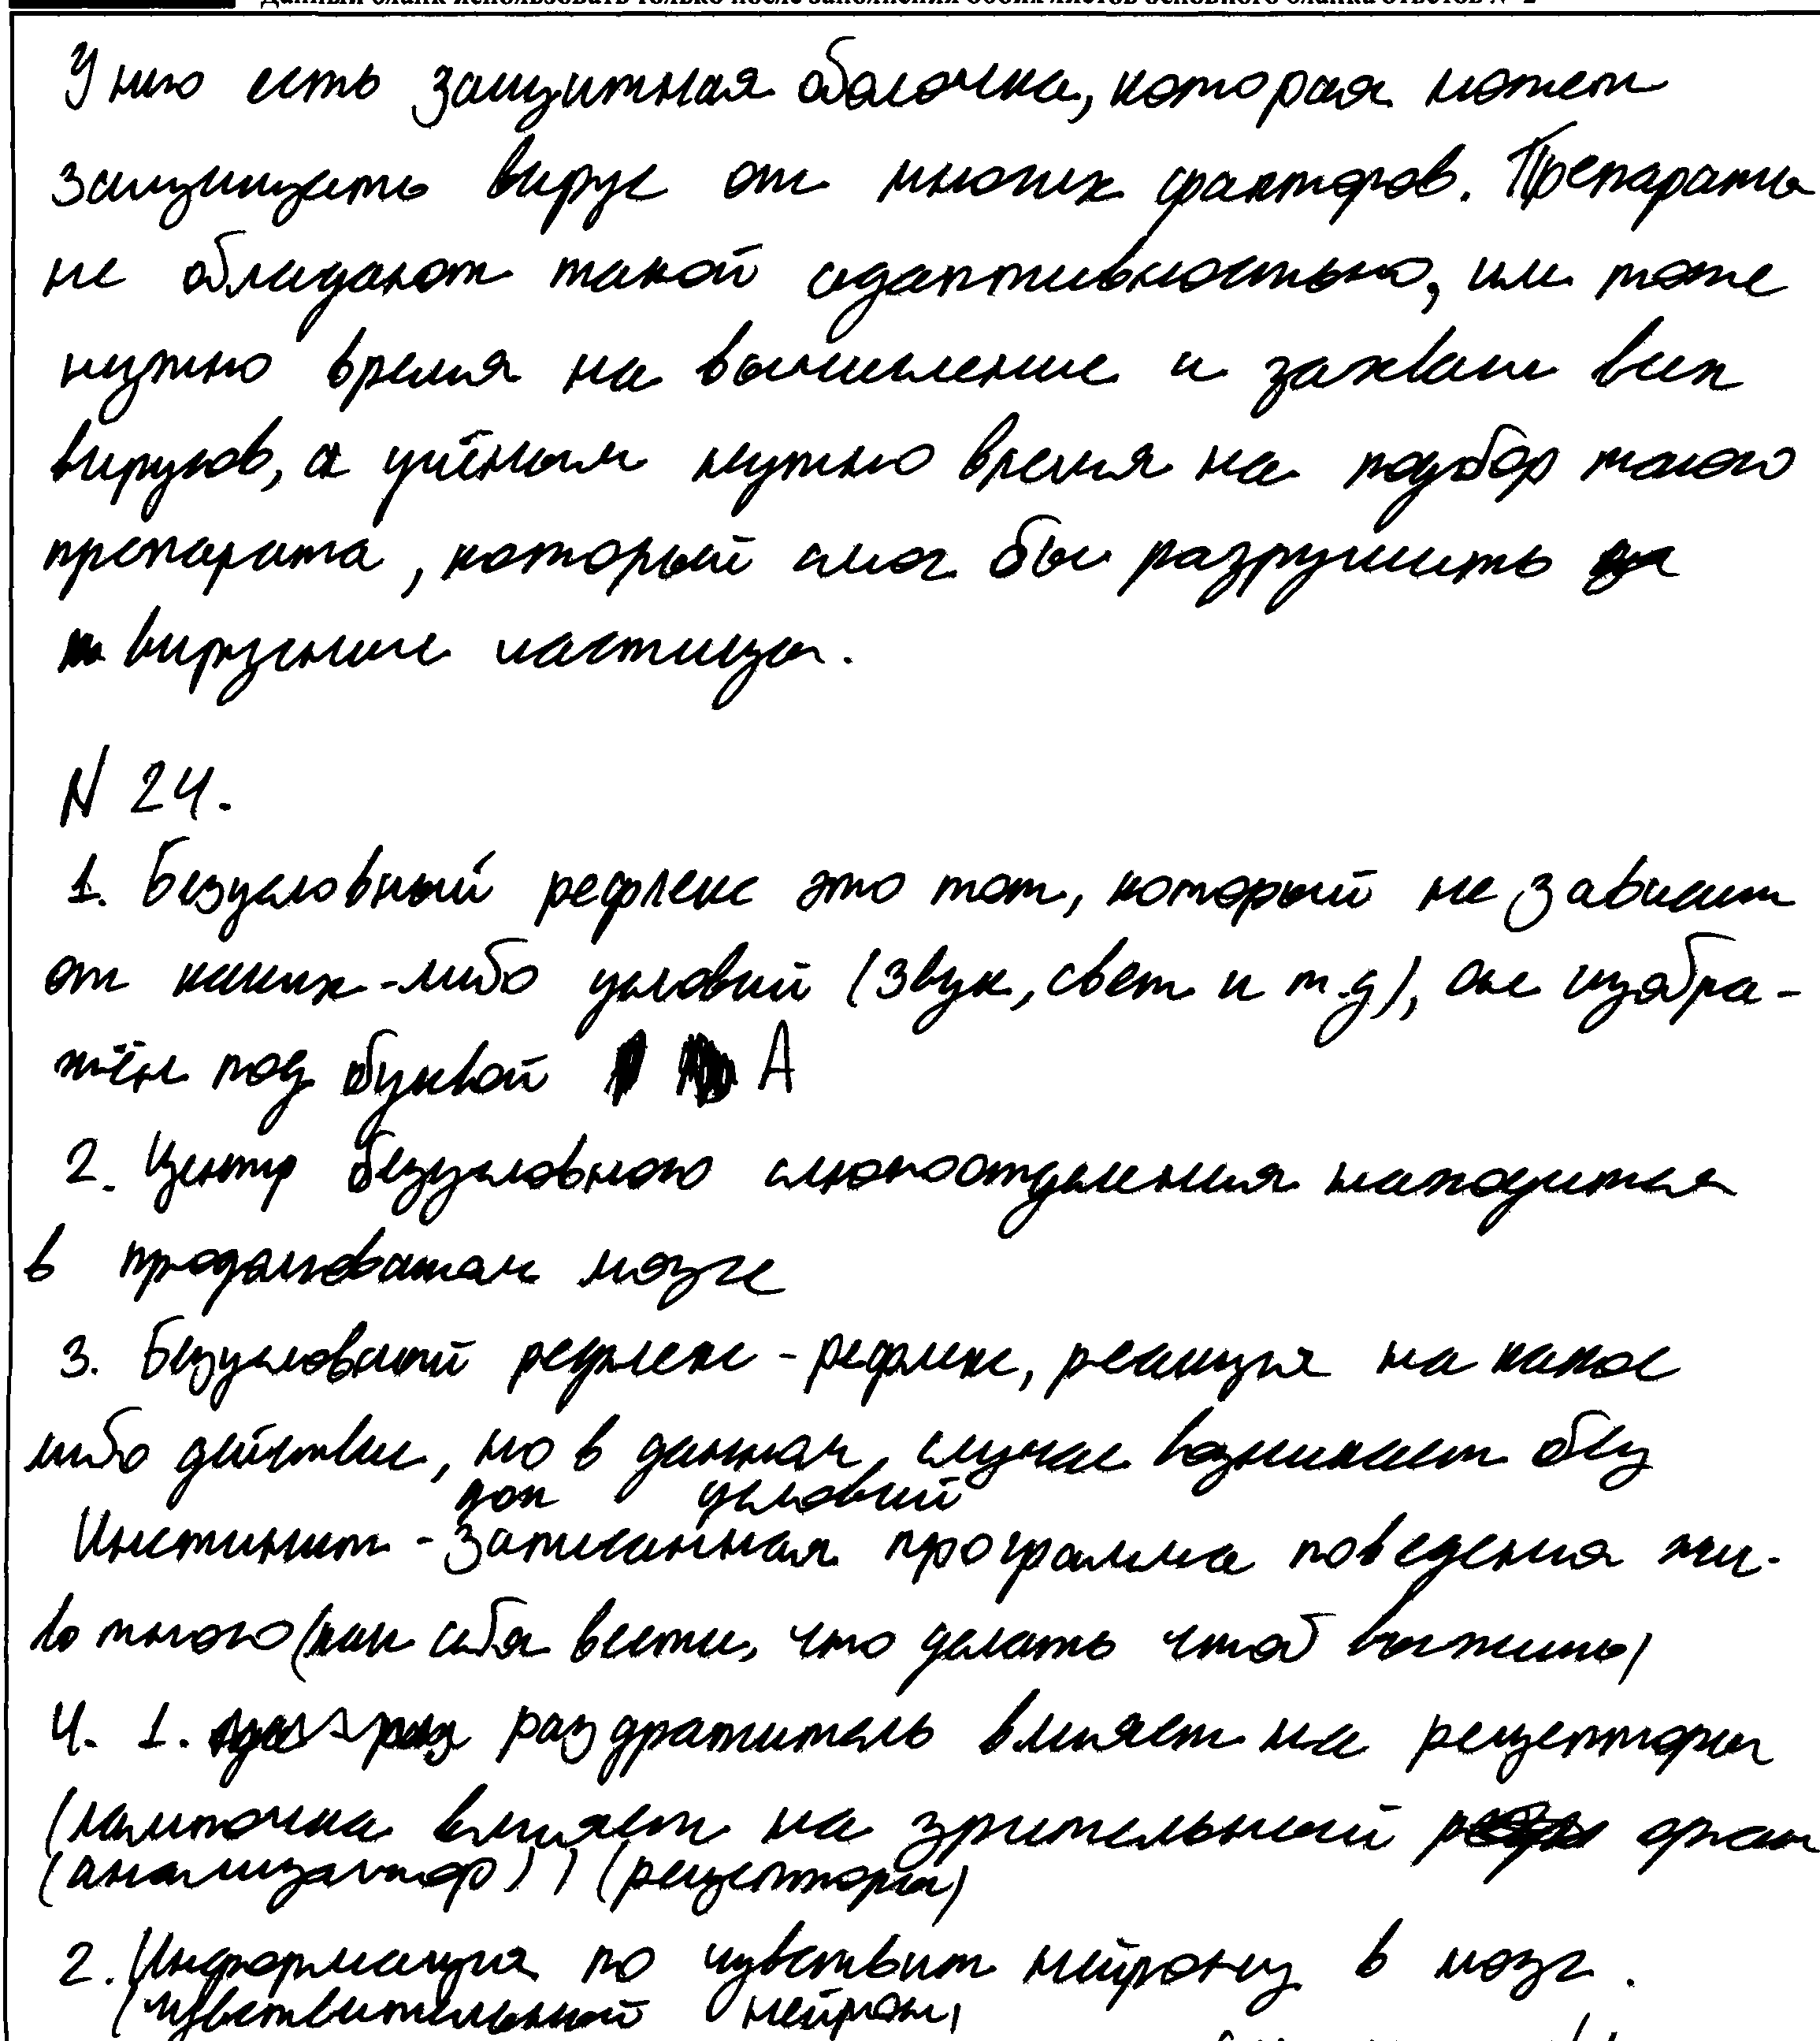 Данный бланк использовать только после заполнения обоих листов основного бланка ответов № 2
У него есть защитная оболочка, которая может
защищать вирус от многих факторов. Препараты
не обладают такой адаптивностью, им тоже
нужно время на вычисление и захват всех
вирусов, а учёным нужно время на подбор такого
препарата, который смог бы разрушить
вирусные частицы.
N 24.
1. Безусловный рефлекс это тот, который не зависит
от каких-либо условий (звук, свет и т.д), он изобра-
жён под буквой А
2. Центр безусловного слюноотделения находится
в продолговатом мозге
3. Безусловный рефлекс - рефлекс, реакция на какое
либо действие, но в данном случае возникает без
доп условий
Инстинкт - записанная программа поведения жи-
вотного (как себя вести, что делать чтоб выжить)
4. 1. раздражитель влияет на рецепторы
(лампочка влияет на зрительный орган
(анализатор)) (рецепторы)
2. Информация по чувствит нейрону в мозг.
(чувствительный нейрон)